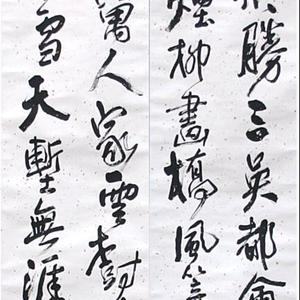 勝三吳都會
煙柳畫橋風簾
萬人家雲樹
雪天塹無涯